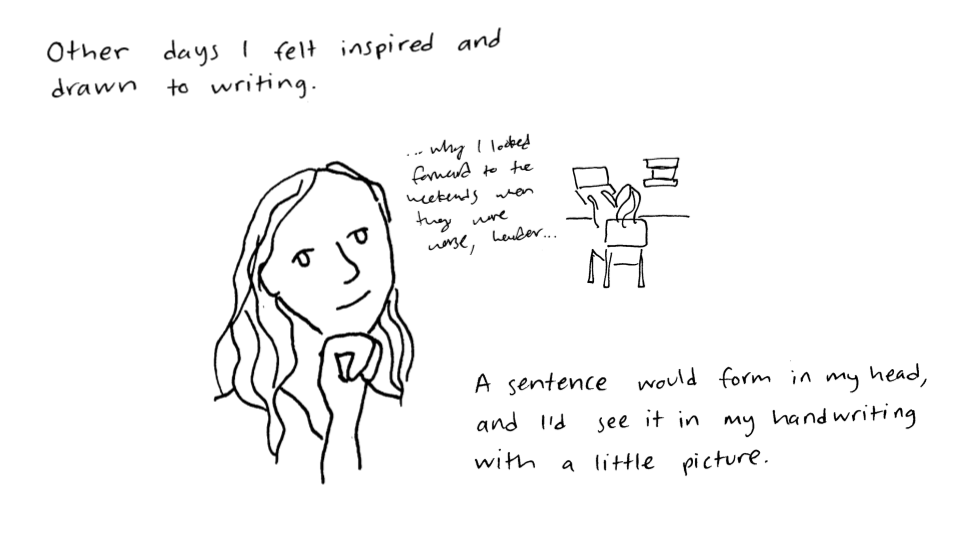 Other days I felt inspired and
drawn to writing.
... why I looked
forward to the
weekends when
they were
worse, harder...
A sentence would form in my head,
and I'd see it in my handwriting
with a little picture.